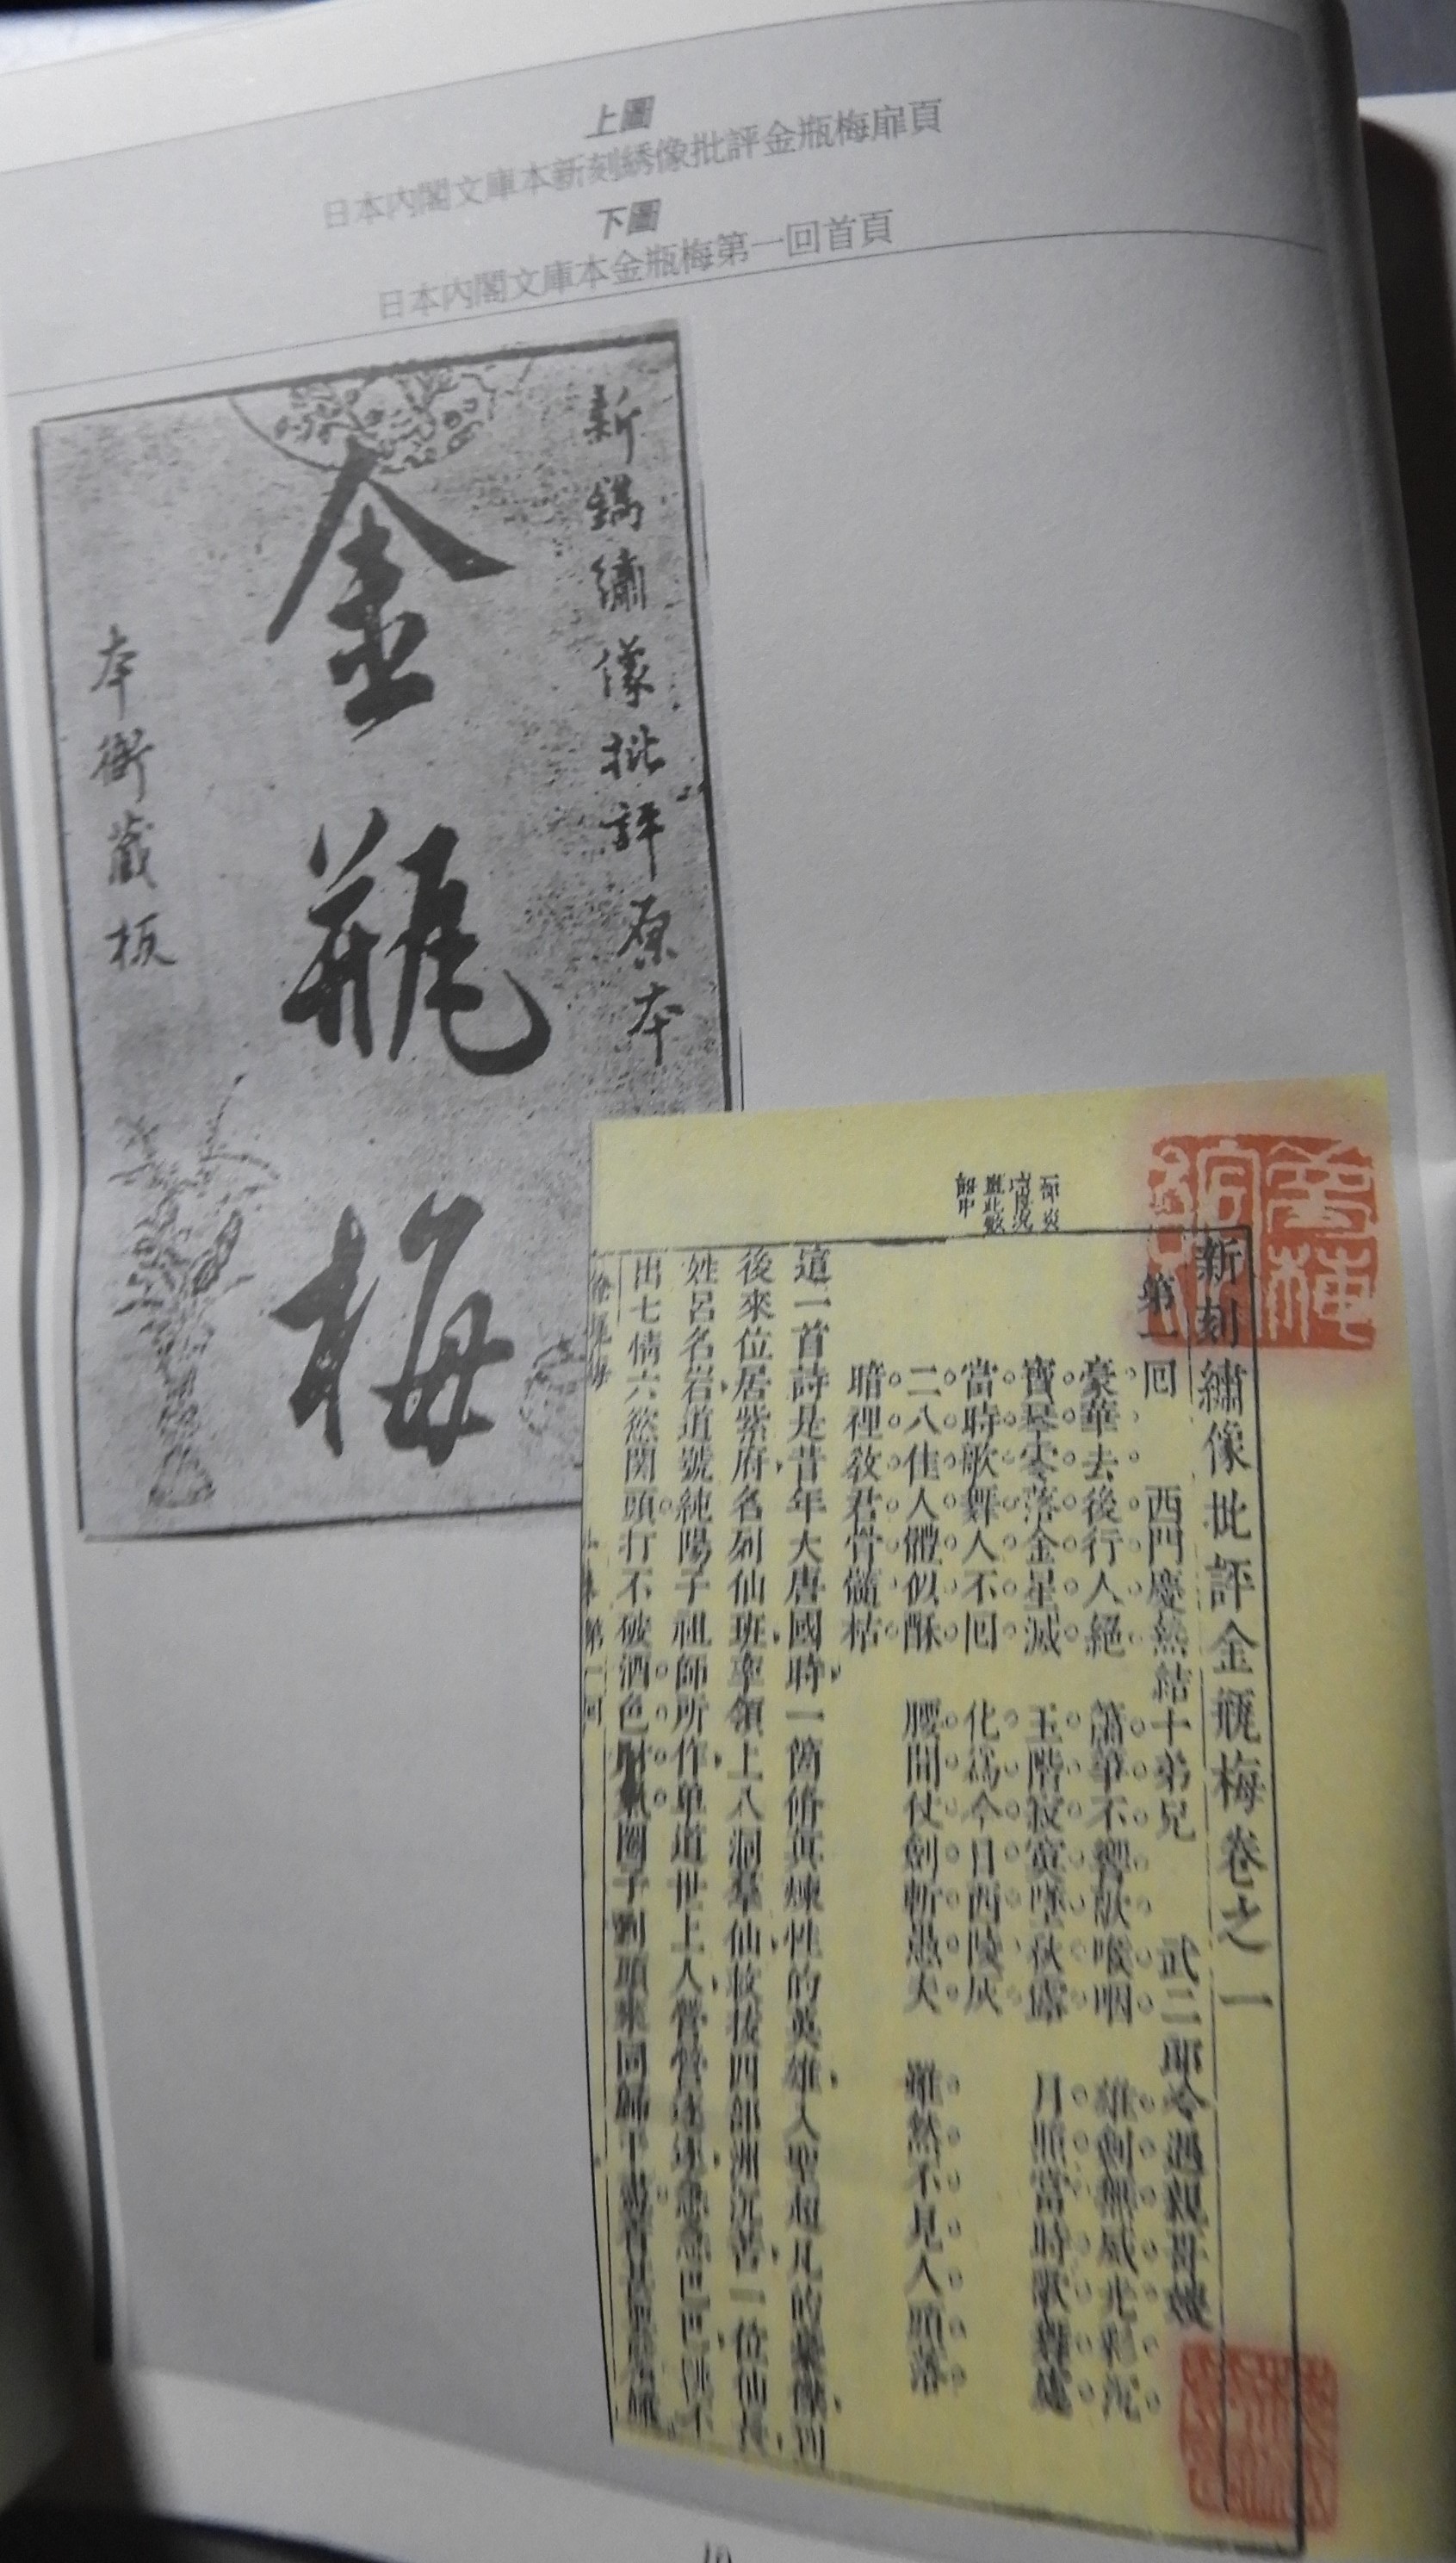 上圖
日本內閣文庫本新刻綉像批評金瓶梅扉頁
下圖
日本內閣文庫本金瓶梅第一回首頁
新鐫繡像批評原本
金瓶梅
本衙藏板
新刻繡像批評金瓶梅卷之一
第一回 西門慶熱結十弟兄 武二郎冷遇親哥嫂
豪華去後行人絕 簫箏不響歌喉咽 雄劍無威光彩沉
寶琴零落金星滅 玉階寂寞墜秋露 月照當時歌舞處
當時歌舞人不回 化爲今日西陵灰
二八佳人體似酥 腰間仗劍斬愚夫 雖然不見人頭落
暗裡教君骨髓枯
道一首詩是昔年大唐國時一箇修真煉性的英雄入聖超凡的豪傑到
後來位居紫府名列仙班率領上八洞羣仙救拔四部洲沉苦一位仙長
姓呂名岩道號純陽子祖師所作單道世上人營營逐逐急急巴巴跳不
出七情六慾関頭打不破酒色財氣圈子到頭來同歸于盡着甚要緊雖